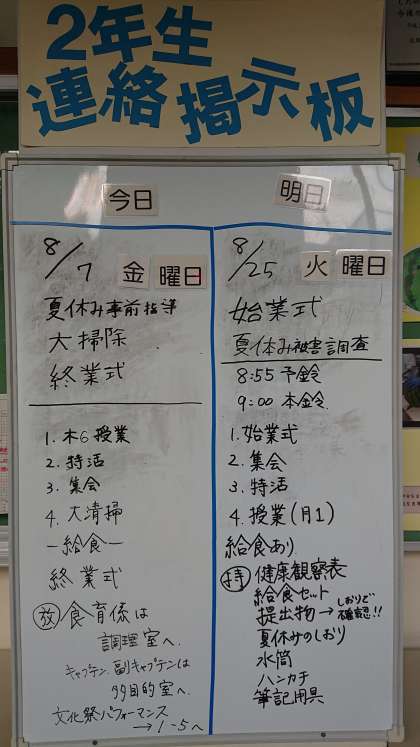 2年生
連絡掲示板
今日
8/7 金 曜日
夏休み事前指導
大掃除
終業式
1. 木6 授業
2. 特活
3. 集会
4. 大清掃
-給食-
終業式
放 食育係は
調理室へ.
キャプテン、副キャプテンは
多目的室へ.
文化祭パフォーマンス
→1-5へ
明日
8/25 火 曜日
始業式
夏休み被害調査
8:55 予鈴
9:00 本鈴
1. 始業式
2. 集会
3. 特活
4. 授業(月1)
給食あり
持 健康観察表
給食セット
提出物→しおりで
確認!!
夏休みのしおり
水筒
ハンカチ
筆記用具